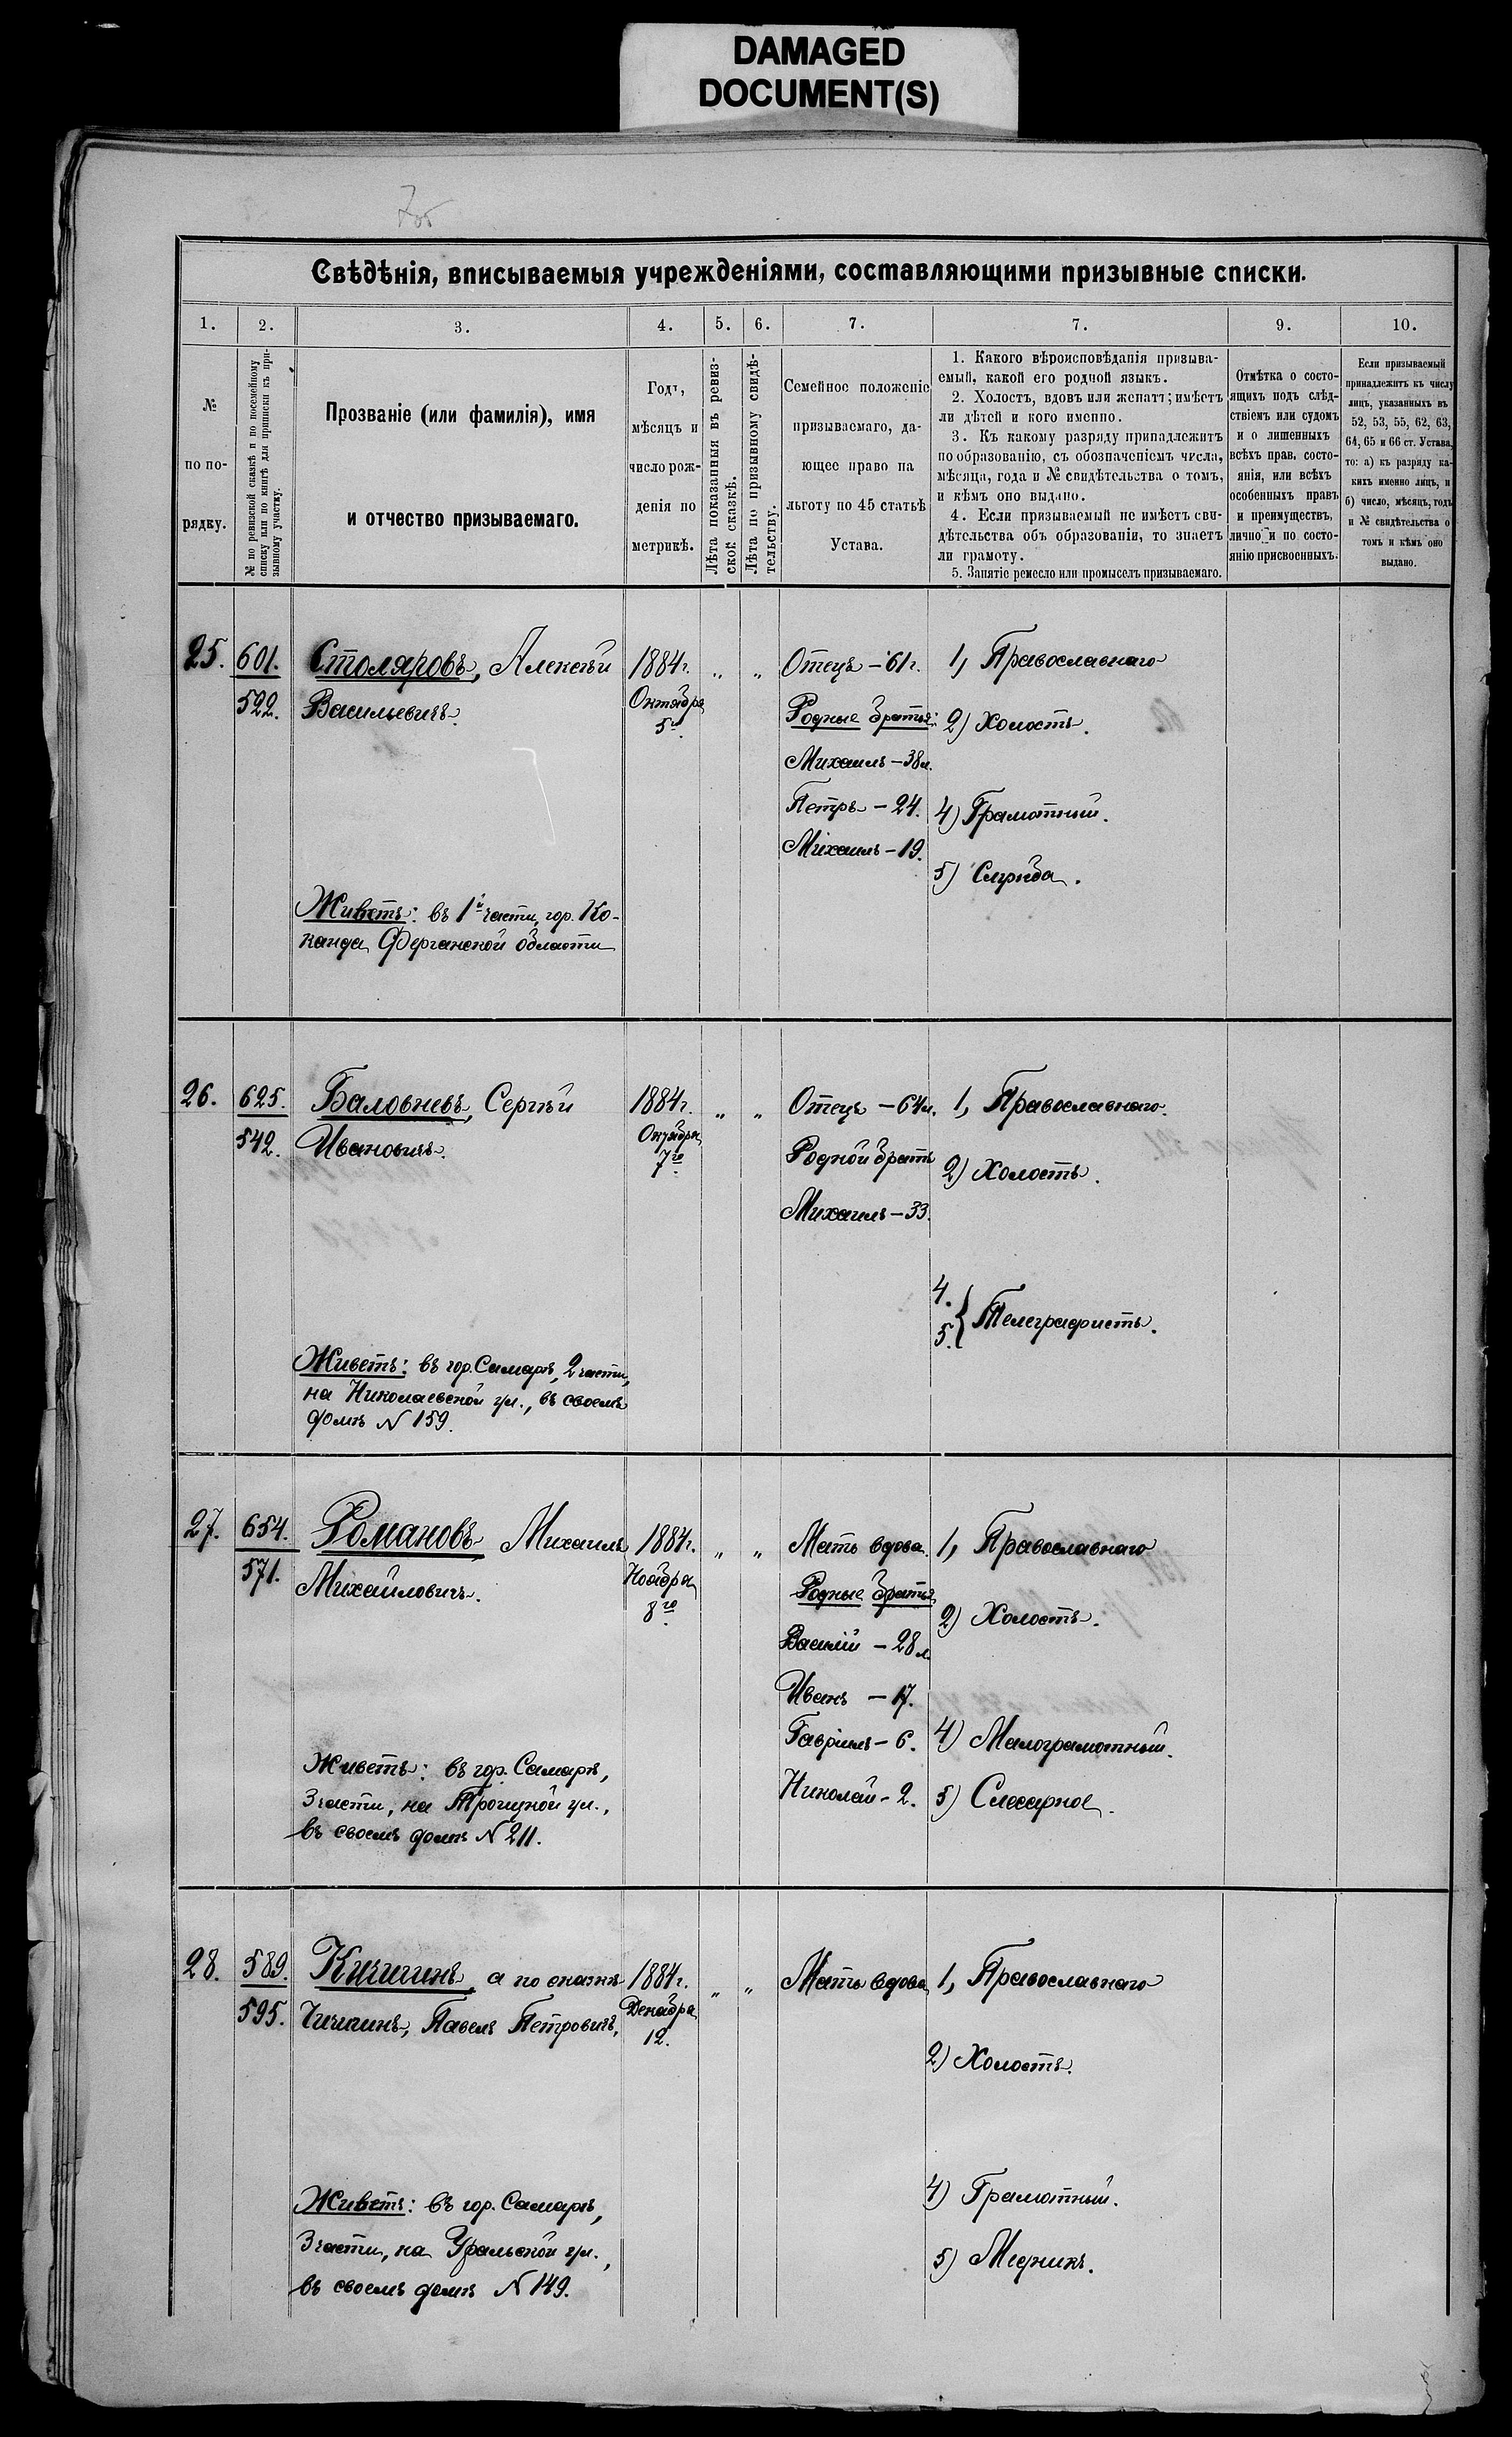 DAMAGED
DOCUMENT(S)
Свѣдѣнія, вписываемыя учрежденіями, составляющими призывные списки.
1.
2.
3.
4.
5.
6.
7.
7.
9.
10.
№
по по-
рядку.
№ по ревизской сказкѣ и по посемейному
списку или по книгѣ для приписки къ при-
зывному участку.
Прозваніе (или фамилія), имя
и отчество призываемаго.
Годъ,
мѣсяцъ и
число рож-
денія по
метрикѣ.
Лѣта показанныя въ ревиз-
ской сказкѣ.
Лѣта по призывному свидѣ-
тельству.
Семейное положеніе
призываемаго, да-
ющее право на
льготу по 45 статьѣ
Устава.
1. Какого вѣроисповѣданія призыва-
емый, какой его родной языкъ.
2. Холостъ, вдовъ или женатъ; имѣетъ
ли дѣтей и кого именно.
3. Къ какому разряду принадлежитъ
по образованію, съ обозначеніемъ числа,
мѣсяца, года и № свидѣтельства о томъ,
и кѣмъ оно выдано.
4. Если призываемый не имѣетъ сви-
дѣтельства объ образованіи, то знаетъ
ли грамоту.
5. Занятіе ремесло или промыселъ призываемаго.
Отмѣтка о состо-
ящихъ подъ слѣд-
ствіемъ или судомъ
и о лишенныхъ
всѣхъ прав. состо-
янія, или всѣхъ
особенныхъ правъ
и преимуществъ,
лично и по состо-
янію присвоенныхъ.
Если призываемый
принадлежитъ къ числу
лицъ, указанныхъ въ
52, 53, 55, 62, 63,
64, 65 и 66 ст. Устава,
то: а) къ разряду ка-
кихъ именно лицъ, и
б) число, мѣсяцъ, годъ
и № свидѣтельства о
томъ и кѣмъ оно
выдано.
25.
601.
522.
Столяровъ, Алексѣй
Васильевичъ.
Живетъ: въ 1й части, гор. Ко-
канда Ферганской области
1884г.
Октября
5го
" "
Отецъ – 61г.
Родные братья:
Михаилъ – 38л.
Петръ – 24.
Михаилъ – 19.
1, Православнаго
2) Холостъ.
4) Грамотный.
5) Служба.
26.
625.
542.
Баловневъ, Сергѣй
Ивановичъ.
Живетъ: въ гор. Самарѣ, 2 части,
на Николаевской ул., въ своемъ
домѣ № 159.
1884г.
Октября
7го
" "
Отецъ – 64л.
Родной братъ
Михаилъ – 33.
1, Православнаго.
2) Холостъ.
4.
5. { Телеграфистъ.
27.
654.
571.
Романовъ Михаилъ
Михайловичъ.
Живетъ: въ гор. Самарѣ,
3 части, на Троицкой ул.,
въ своемъ домѣ № 211.
1884г.
Ноября
8го
" "
Мать вдова.
Родные братья
Василій – 28л.
Иванъ – 17.
Гавріилъ – 6.
Николай – 2.
1, Православнаго
2) Холостъ.
4) Малограмотный.
5) Слесарное.
28.
589.
595.
Кичигинъ, а по сказкѣ
Чичигинъ, Павелъ Петровичъ,
Живетъ: въ гор. Самарѣ,
3 части, на Уральской ул.,
въ своемъ домѣ № 149.
1884г.
Декабря
12.
" "
Мать вдова
1, Православнаго
2) Холостъ.
4) Грамотный.
5) Медникъ.